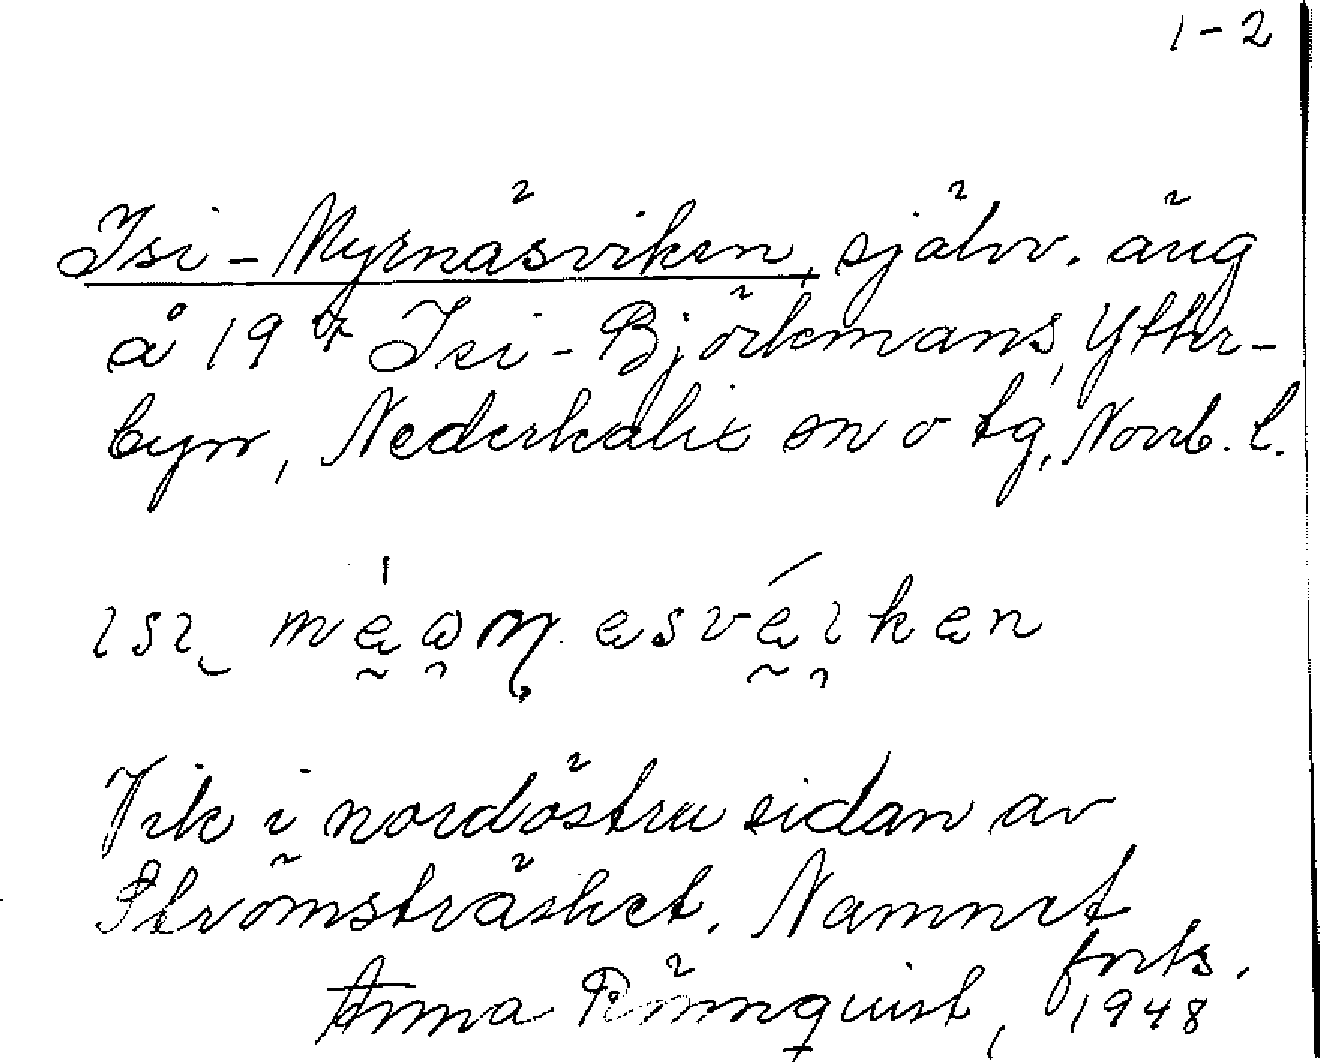 1-2
Isi-Myrnäsviken, självv. äng
å 19 Isi-Björkmans, Ytter-
byn, Nederkalix sn o tg, Norrb. l.
ɩsɩ
Vik i nordöstra sidan av
Strömsträsket. Namnet
forts.
Anna Rönnquist, 1948